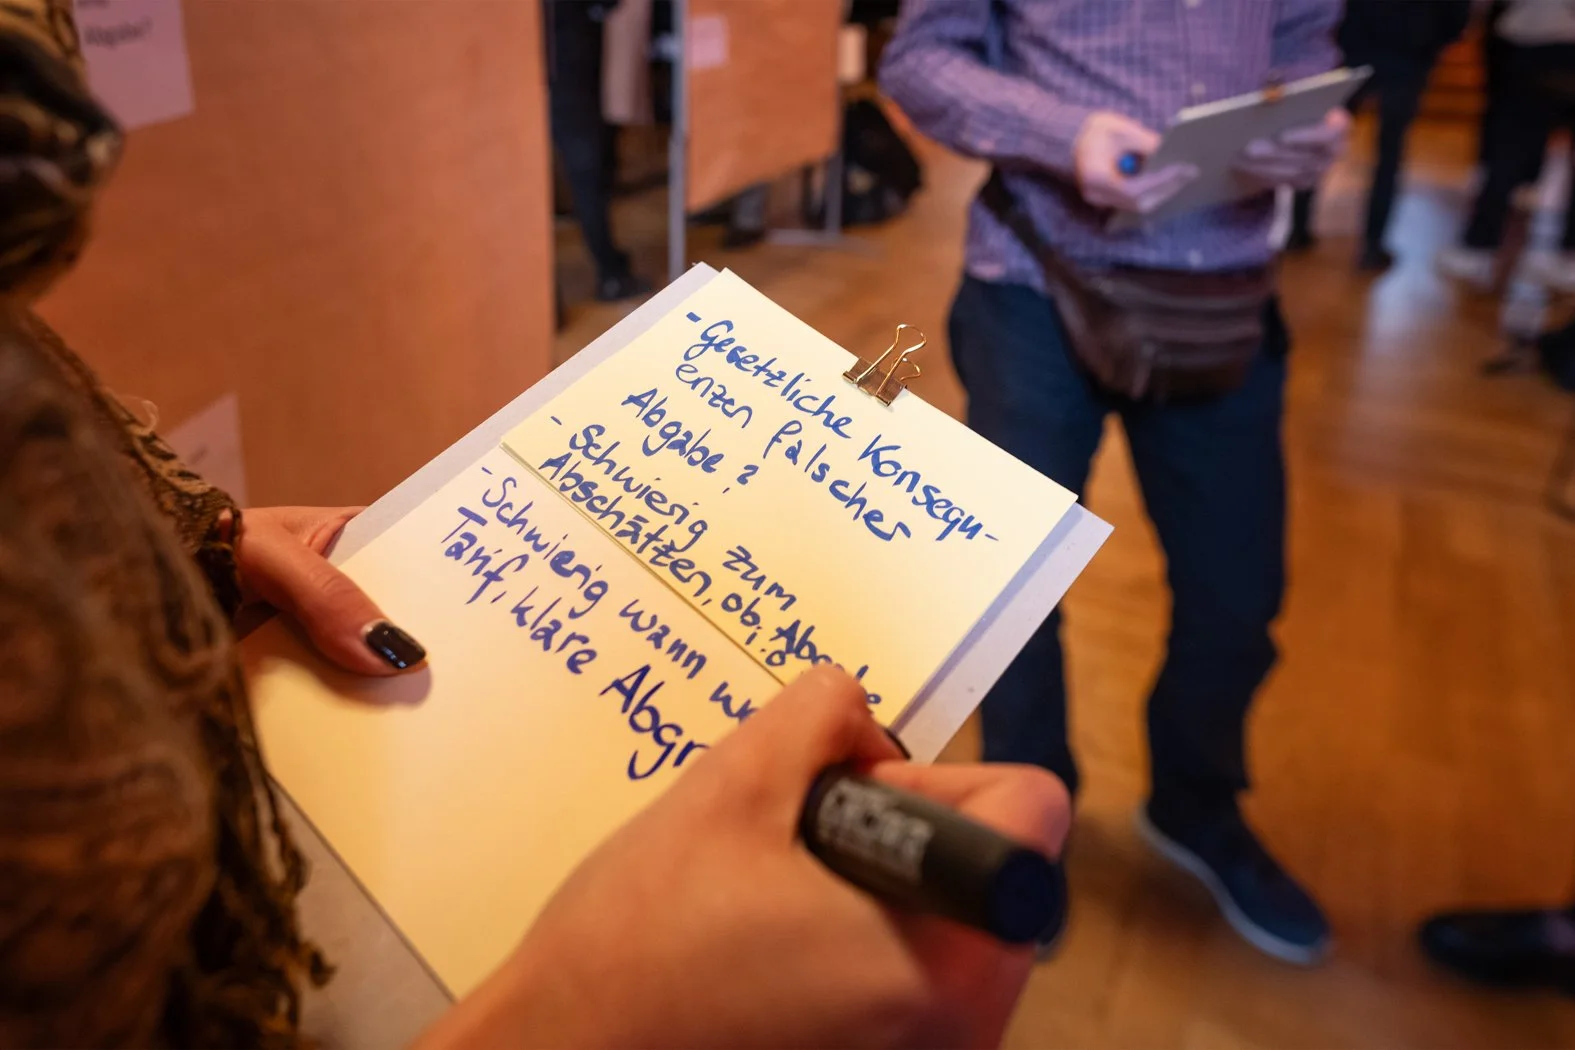 - Gesetzliche Konsequ-
enzen falscher
Abgabe?
- Schwierig zum
Abschätzen, ob
- Schwierig wann
Tarif, klare Abgr
Abgabe?